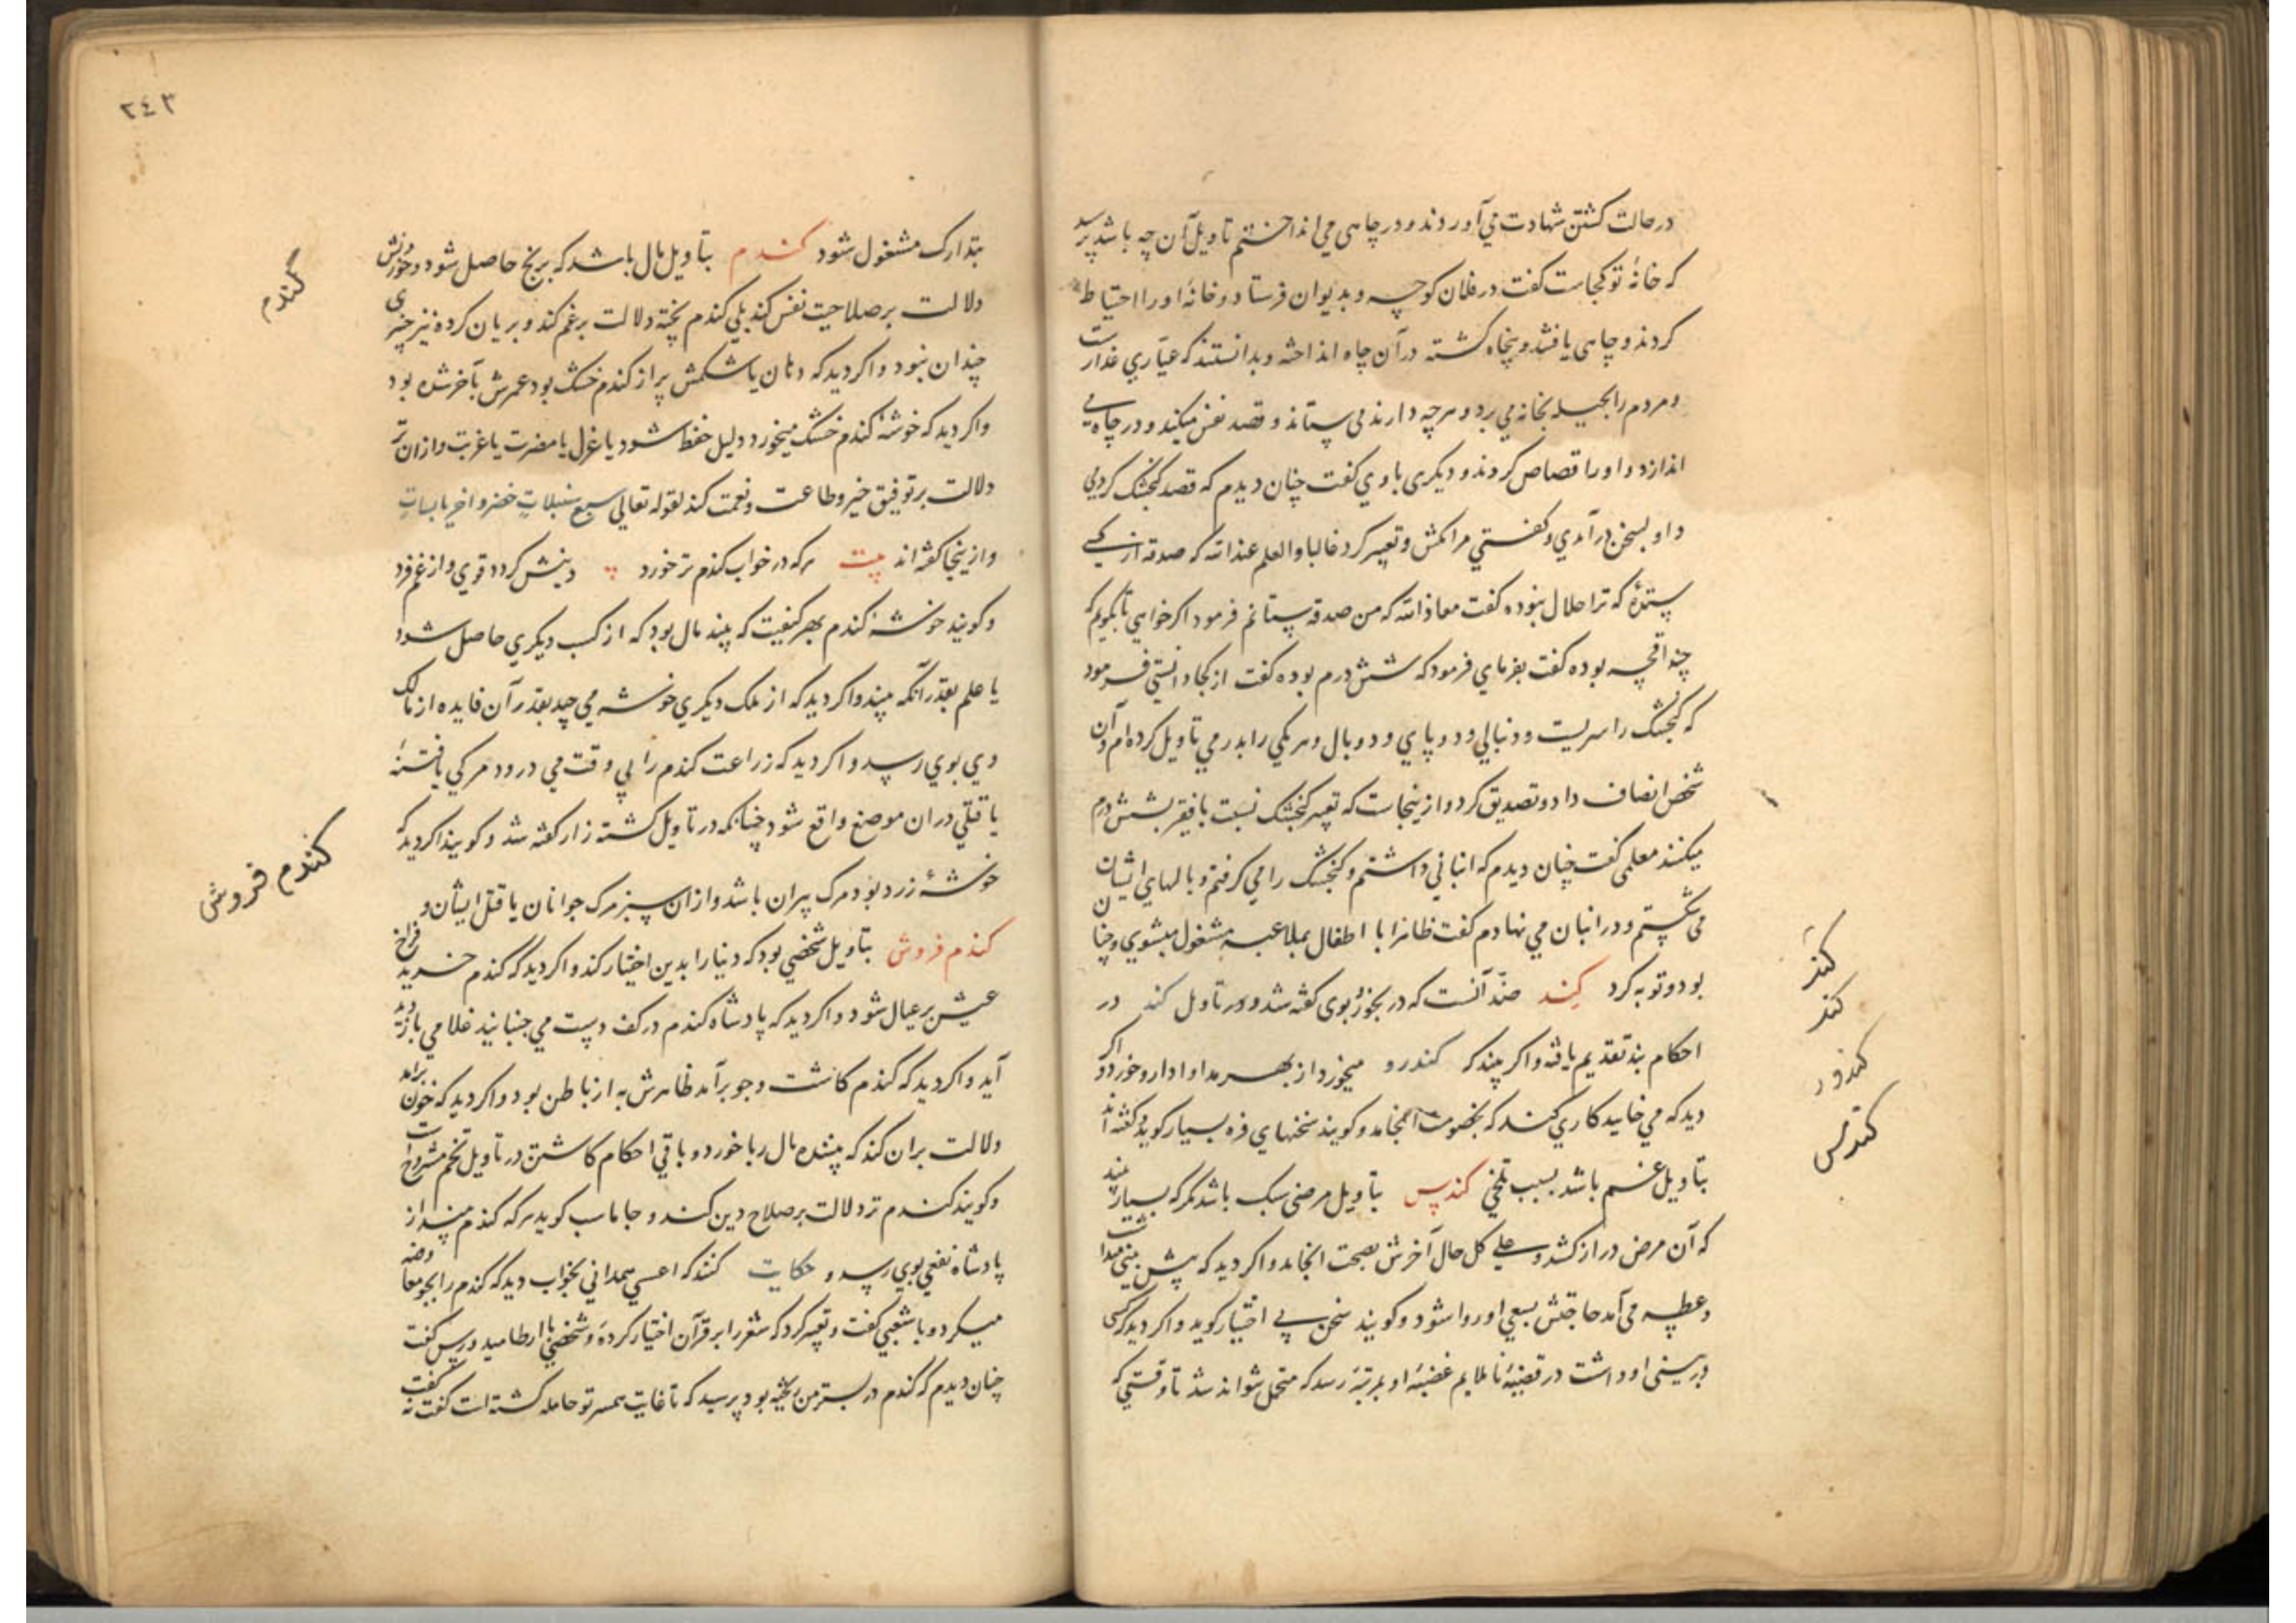 در حالت کشتن شهادت می‌آوردند و در چاهی می انداختم تاویل آن چه باشد پرسید
که خانهٔ تو کجاست گفت در فلان کوچه و بدیوان فرستاد و خانهٔ او را احتیاط
کردند و چاهی یافتند و پنجاه کشته در آن چاه انداخته و بدانستند که عیاری غدارست
و مردم را بحیله بخانه می برد و هرچه دارند می ستاند و قصد نفس میکند و در چاه می
اندازد و او را قصاص کردند و دیکری با وی گفت چنان دیدم که قصد کنجشک کردمی
و او بسخن درآمدی و گفتی مرا مکش و تعبیر کرد غالبا والعلم عندالله که صدقه از کسی
ستدهٔ که ترا حلال نبوده گفت معاذالله که من صدقه ستانم فرمود اگر خواهی تا بگویم که
چند اقچه بوده گفت بفرمای فرمود که شش درم بوده گفت از کجا دانستی فرمود
که کنجشک را سریست و دنبالی و دو پای و دو بال و هر یکی را بدرمی تاویل کرده ام و آن
شخص انصاف داد و تصدیق کرد و از ینجاست که تعبیر کنجشک نسبت با فقیر بشش درم
میکنند معلمی گفت چنان دیدم که انبانی داشتم و کنجشک را می کرفتم و بالهای ایشان
می شکستم و در انبان می نهادم گفت ظاهرا با اطفال بملاعبه مشغول میشوی و چنان
بود و توبه کرد کند ضد آنست که در بخور بوی گفته شد و در تاویل کند در
احکام بند تقدیم یافته و اکر بیند که کندرو میخورد از بهر مداوا دارو خورد و اکر
دید که می خاید کاری کند که بخصومت انجامد و کویند سخنهای فره بسیار کوید کفته اند
بتاویل غم باشد بسبب تلخی کندس بتاویل مرضی سبک باشد مکر که بسیار بیند
که آن مرض دراز کشد و علی کل حال آخرش بصحت انجامد و اکر دید که پیش بینی میداشت
و عطسه می آمد حاجتش بسعی او روا شود و کویند سخن بی اختیار کوید و اکر دید که کسی
در بینی او داشت در قضیهٔ ناملایم غضبهٔ او بمرتبهٔ رسد که متحمل نتواند شد تا وقتی که
کند
کند
کندور
کندس
٢٤٣
بتدارک مشغول شود کندم بتاویل مال باشد که برنج حاصل شود و خوردنش
دلالت بر صلاحیت نفس کند بلی کندم پخته دلالت بر غم کند و بریان کرده نیز چیزی
چندان نبود و اکر دید که دهان یا شکمش پر از کندم خشک بود عمرش بآخر شده بود
و اکر دید که خوشهٔ کندم خشک میخورد دلیل قحط شود یا عزل یا مضرت یا غربت و از ان تر
دلالت بر توفیق خیر و طاعت و نعمت کند لقوله تعالی سبع سنبلات خضر و اخر یابسات
و از ینجا کفته اند بیت هرکه در خواب کندم تر خورد دینش کردد قوی و از غم فرد
و کویند خوشهٔ کندم بهر کیفیت که بیند مال بود که از کسب دیکری حاصل شود
یا علم بقدر آنکه بیند و اکر دید که از ملک دیکری خوشه می چید بقدر آن فایده از مالک
وی بوی رسد و اکر دید که زراعت کندم را بی وقت می درود مرکی یا فتنهٔ
یا قتلی در ان موضع واقع شود چنانکه در تاویل کشته زار کفته شد و کویند اکر دید که
خوشهٔ زرد بود مرک پیران باشد و از ان سبز مرک جوانان یا قتل ایشان و
کندم فروش بتاویل شخصی بود که دنیا را بدین اختیار کند و اکر دید که کندم خرید فراخ
عیش بر عیال شود و اکر دید که پادشاه کندم در کف دست می جنبانید غلامی بازدید
آید و اکر دید که کندم کاشت و جو برآمد ظاهرش به از باطن بود و اکر دید که خون برآمد
دلالت بران کند که بیننده مال ربا خورد و باقی احکام کاشتن در تاویل تخم مشروح است
و کویند کندم تر دلالت بر صلاح دین کند و جاماسب کوید هرکه کندم بیند از
پادشاه نفعی بوی رسد و حکایت کنند که اعشی همدانی بخواب دید که کندم را بجو معاوضه
میکرد و با شعبی کفت و تعبیر کرد که شعر را بر قرآن اختیار کردهٔ و شخصی با ارطامیدورس کفت
چنان دیدم که کندم در بستر من ریخته بود پرسید که تا غایت همسر تو حامله کشته است کفت نه کفت
گندم
کندم فروش